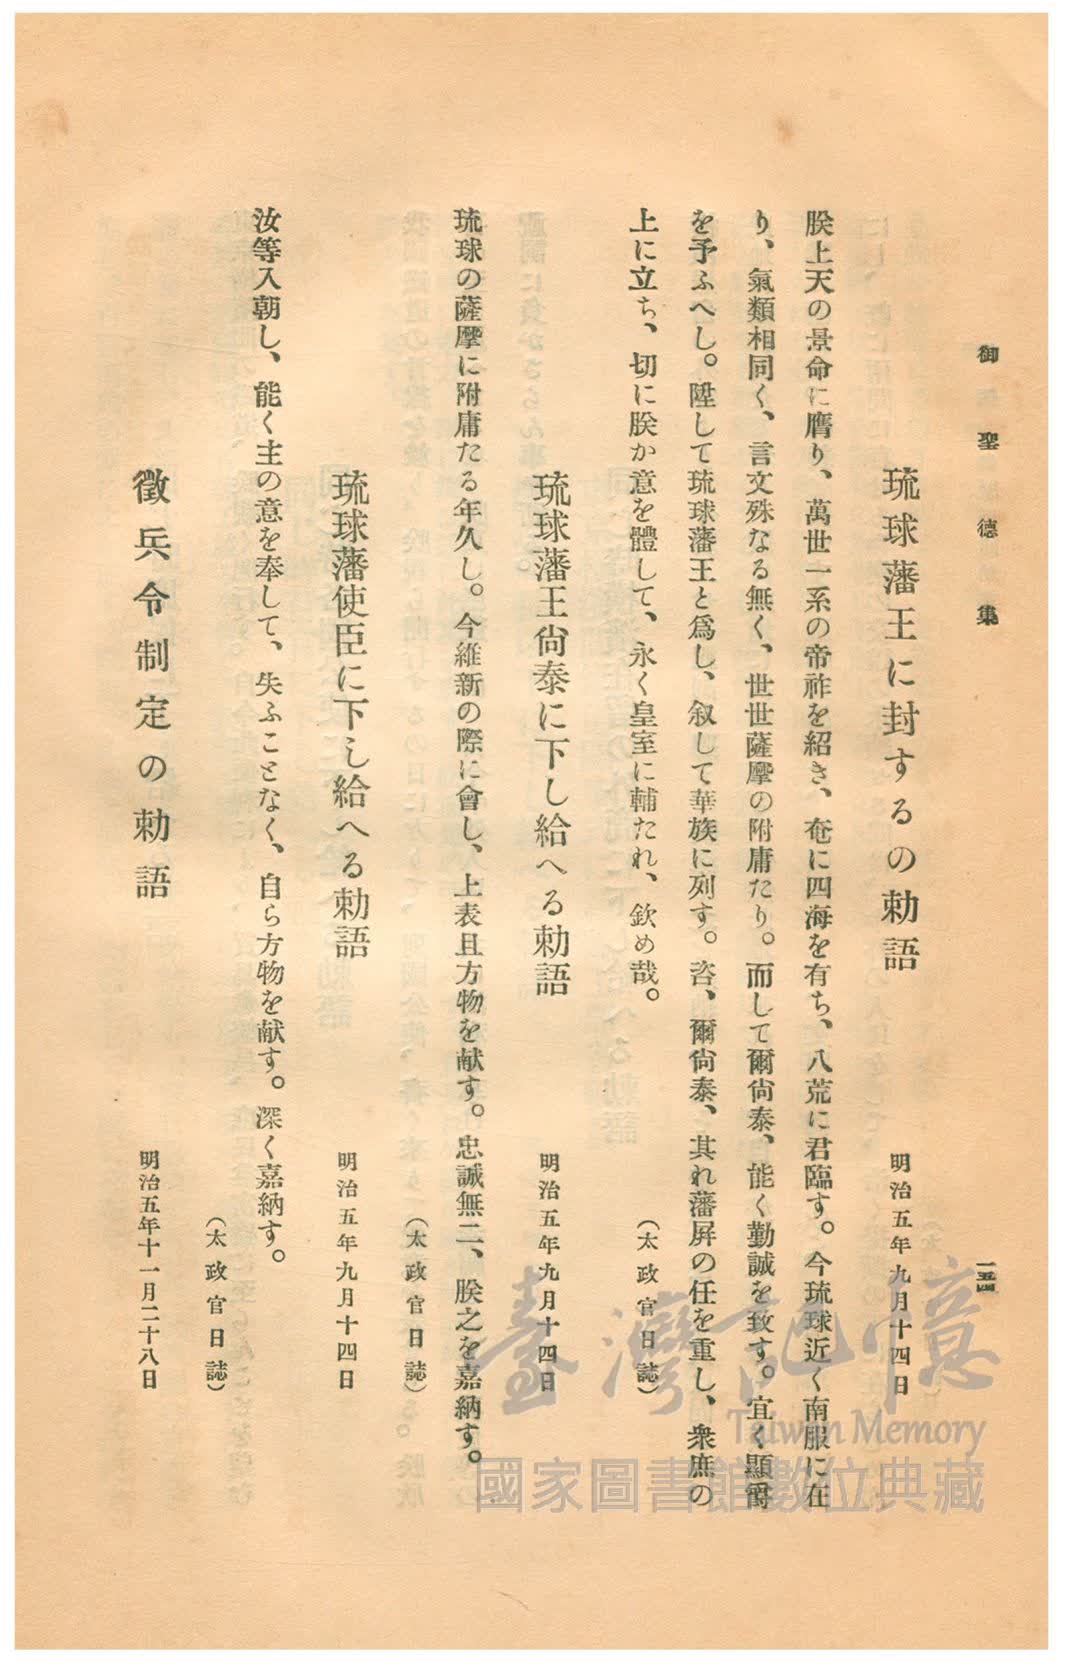 御聖徳集
一五四
琉球藩王に封するの勅語
明治五年九月十四日
朕上天の景命に膺り、萬世一系の帝祚を紹き、奄に四海を有ち、八荒に君臨す。今琉球近く南服に在
り、氣類相同く、言文殊なる無く、世世薩摩の附庸たり。而して爾尙泰、能く勤誠を致す。宜く顯爵
を予ふへし。陞して琉球藩王と爲し、叙して華族に列す。咨、爾尙泰、其れ藩屛の任を重し、衆庶の
上に立ち、切に朕か意を體して、永く皇室に輔たれ、欽め哉。
(太政官日誌)
琉球藩王尙泰に下し給へる勅語
明治五年九月十四日
琉球の薩摩に附庸たる年久し。今維新の際に會し、上表且方物を献す。忠誠無二、朕之を嘉納す。
(太政官日誌)
琉球藩使臣に下し給へる勅語
明治五年九月十四日
汝等入朝し、能く主の意を奉して、失ふことなく、自ら方物を献す。深く嘉納す。
(太政官日誌)
徵兵令制定の勅語
明治五年十一月二十八日
臺灣記憶
Taiwan Memory
國家圖書館數位典藏